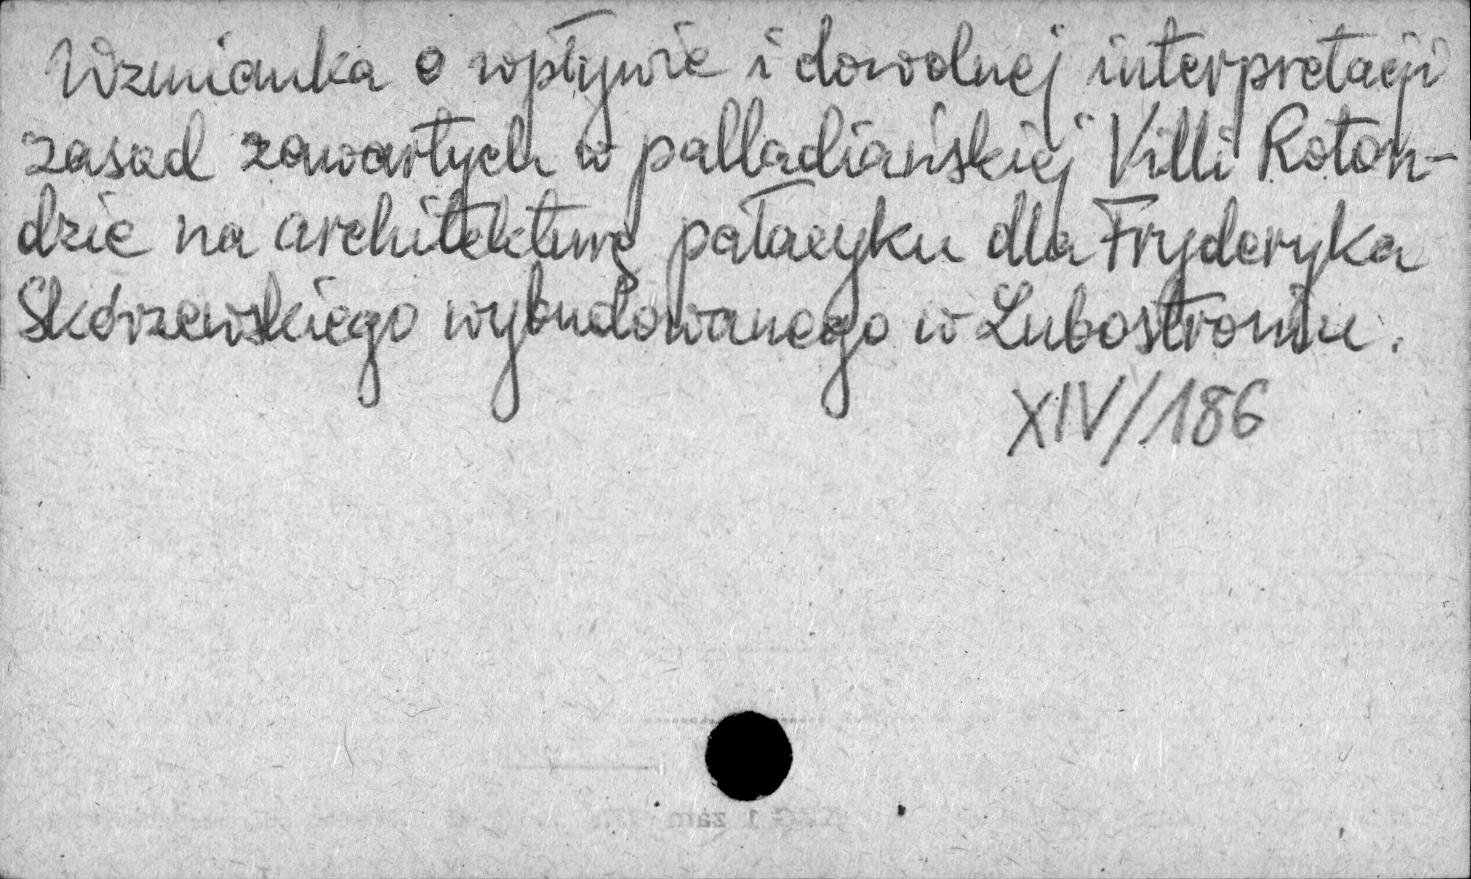 Wzmianka o wpływie i dowolnej interpretacji
zasad zawartych w palladiańskiej Villi Roton-
dzie na architekturę pałacyku dla Fryderyka
Skórzewskiego wybudowanego w Lubostroniu.
XIV/186